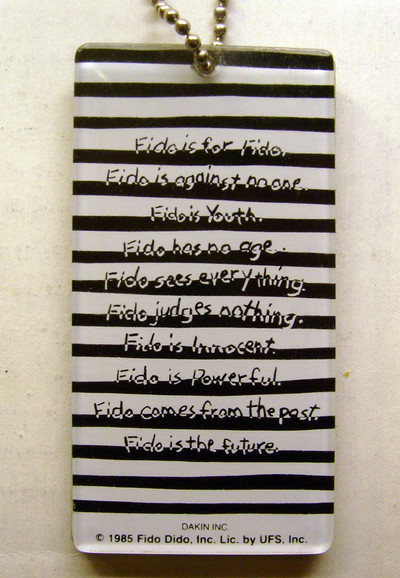 Fido is for Fido.
Fido is against no one.
Fido is Youth.
Fido has no age.
Fido sees everything.
Fido judges nothing.
Fido is Innocent.
Fido is Powerful.
Fido comes from the past.
Fido is the future.
DAKIN INC.
© 1985 Fido Dido, Inc. Lic. by UFS, Inc.